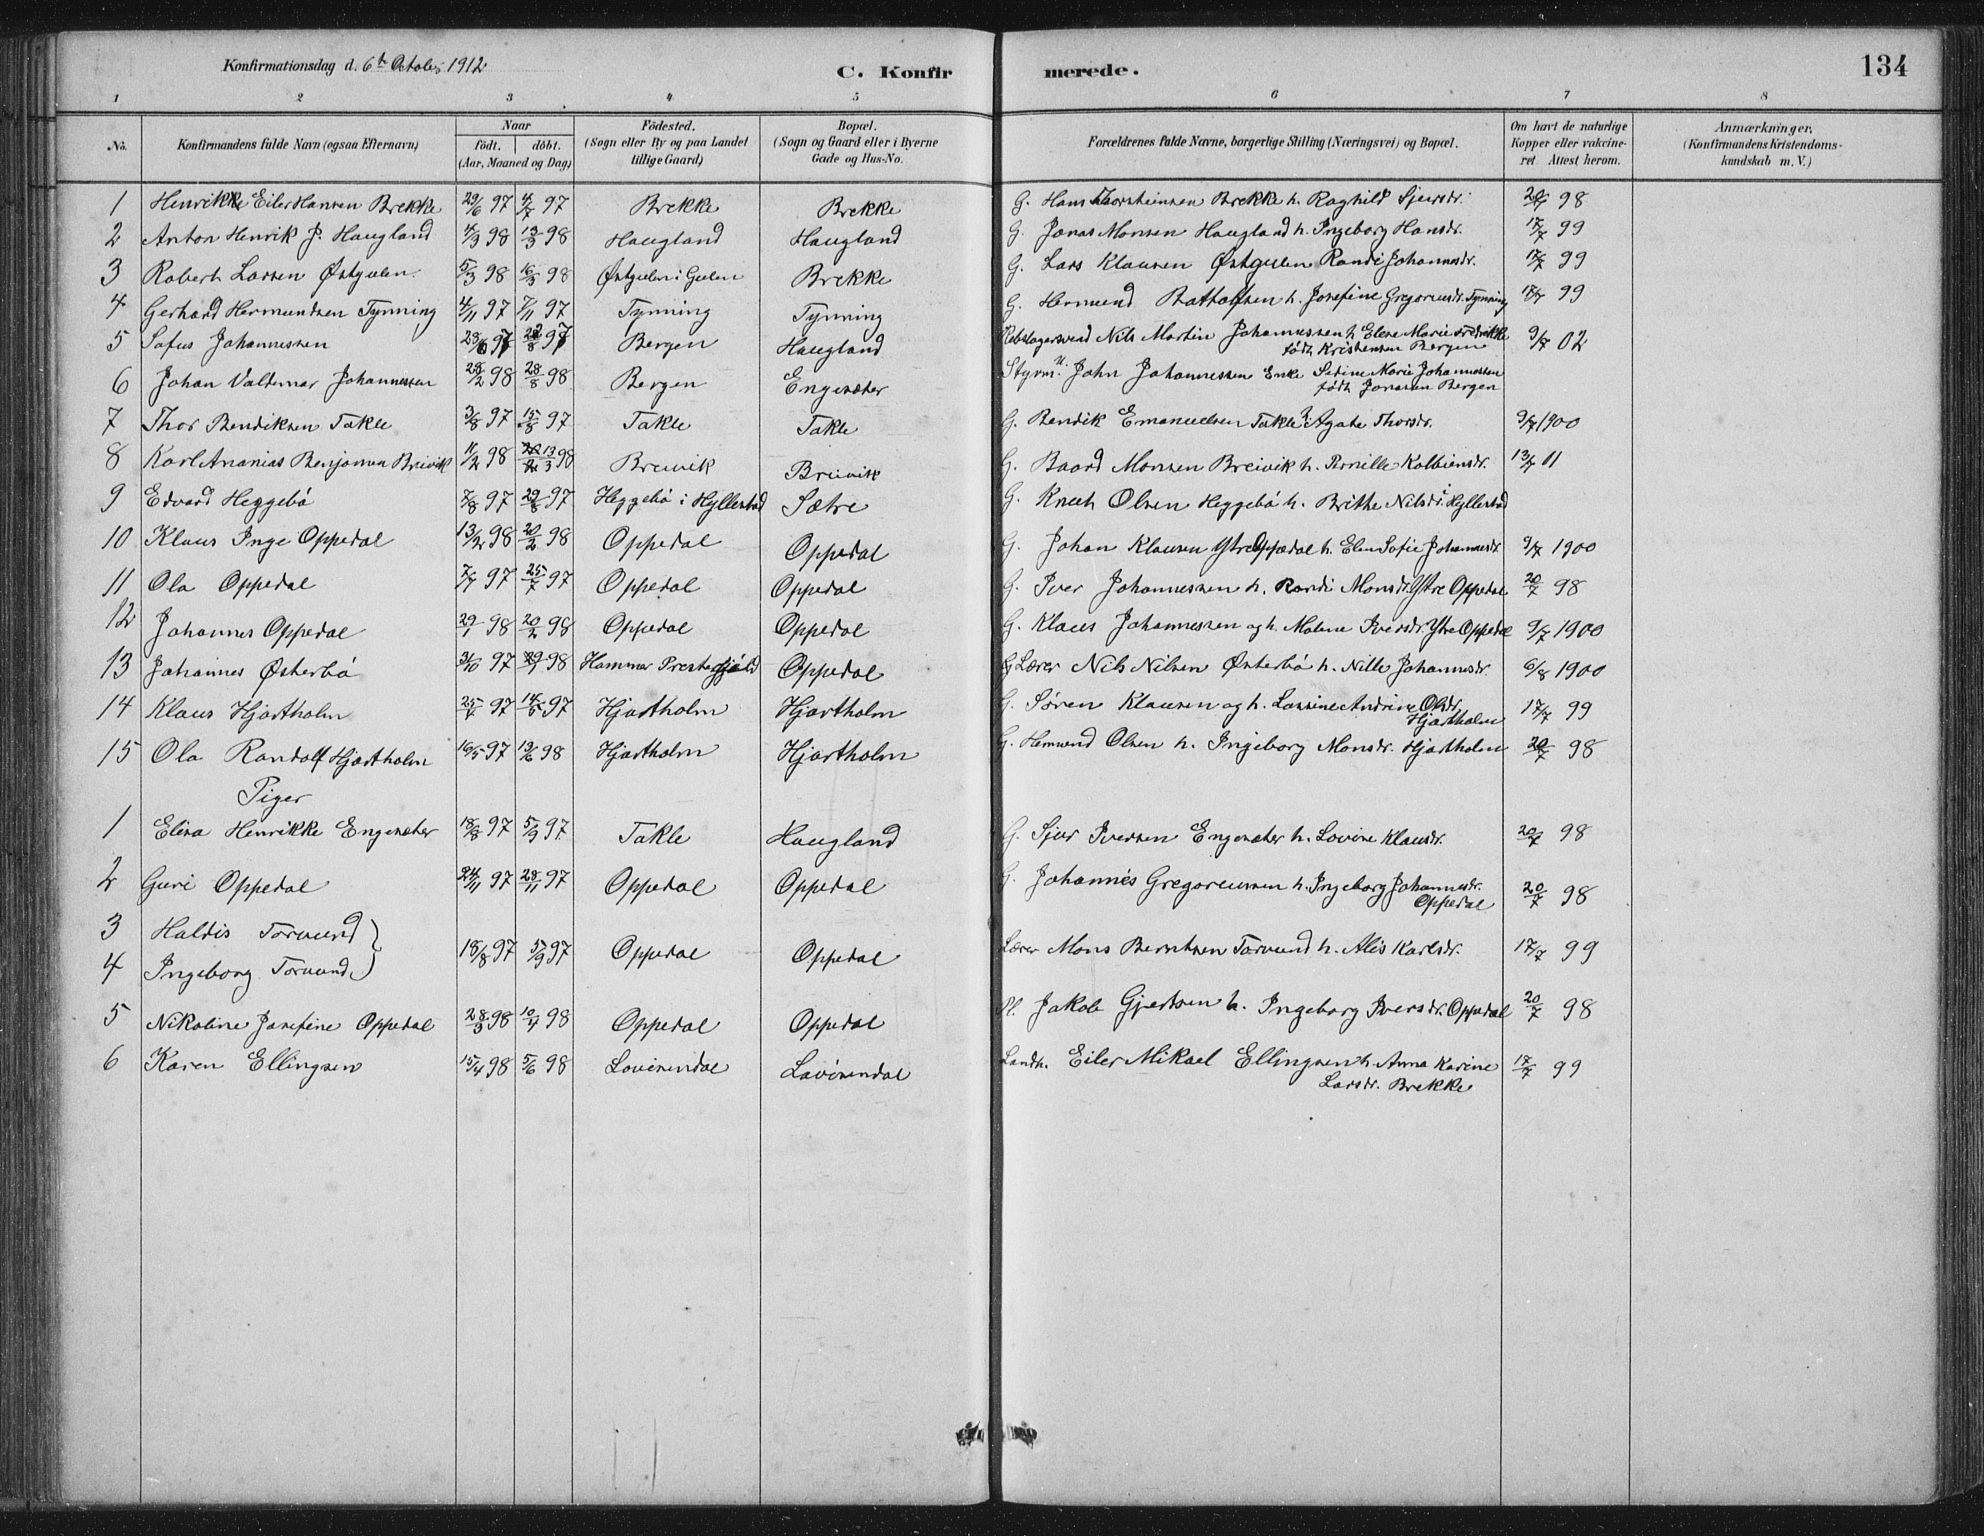 Konfirmationsdag d. 6th October 1912
C. Konfirmerede.
134
1 2 3 4 5 6 7 8
No. Konfirmandens fulde Navn (ogsaa Efternavn) Naar födt. döbt. (Aar, Maaned og Dag) Födested. (Sogn eller By og paa Landet tillige Gaard) Bopæl. (Sogn og Gaard eller i Byerne Gade og Hus-No. Forældrenes fulde Navne, borgerlige Stilling (Næringsvei) og Bopæl. Om havt de naturlige Kopper eller vakcineret Attest herom. Anmærkninger. (Konfirmandens Kristendomskundskab m. V.)
1 Henrikke Eiler Hansen Brekke 29/6 97 4/7 97 Brekke Brekke G. Hans Thorsteinsen Brekke h. Raghild Sjursdr. 20/7 98
2 Anton Henrik J. Haugland 4/3 98 13/3 98 Haugland Haugland G. Jonas Monsen Haugland h. Ingeborg Hansdr. 17/7 99
3 Robert Larsen Østgulen. 5/3 98 16/3 98 Østgulen i Gulen Brekke G. Lars Klausen Østgulen Randi Johannesdr. 17/7 99
4 Gerhard Hermundsen Tynning 4/11 97 7/11 97 Tynning Tynning G. Hermund Rattolfsen h. Josefine Gregoriusdr. Tynning 18/7 99
5 Sofus Johannessen 97 97 Bergen Haugland Rebslagersvend Nils Martin Johannessen h Elene Marie Fredrikke
født Kristensen Bergen 9/7 02
6 Johan Valdemar Johannessen 28/2 98 28/8 98 Bergen Engesæter Styrm. John Johannessen Enke Sedine Marie Johannessen
født Jonsson Bergen
7 Thor Bendiksen Takle 3/8 97 15/8 97 Takle Takle G. Bendik Emanuelsen Takle h. Agate Thorsdr. 9/7 1900
8 Karl Ananias Benjamin Breivik 11/2 98 13/3 98 Breivik Breivik G. Baard Monsen Breivik h. Pernille Kolbiensdr. 13/7 11
9 Edvard Heggebö 7/8 97 29/8 97 Heggebö i Hyllestad Sætre G. Knut Olsen Heggebö h. Brithe Nilsdr. i Hyllestad
10 Klaus Inge Oppedal 13/2 98 20/2 98 Oppedal Oppedal G. Johan Klausen Ytre Oppedal h. Elen Sofie Johannesdr. 9/7 1900
11 Ola Oppedal 7/7 97 25/7 97 Oppedal Oppedal G. Iver Johannessen h. Randi Monsdr. Ytre Oppedal 20/7 98
12 Johannes Oppedal 29/1 98 20/2 98 Oppedal Oppedal G. Klaus Johannessen og h. Malene Iversdr. Ytre Oppedal 9/7 1900
13 Johannes Østerbö 3/10 97 98 Hammer Prestegjæld Oppedal G Lærer Nils Nilsen Østerbö h. Nille Johannesdr. 6/8 1900
14 Klaus Hjartholm 97 97 Hjartholm Hjartholm G. Søren Klausen og h. Lassine Andrine Olsdr.
Hjartholm 17/7 99
15 Ola Randolf Hjartholm 16/5 97 98 Hjartholm Hjartholm G. Hermund Olsen h. Ingeborg Monsdr. Hjartholm 20/7 98
Piger
1 Elina Henrikke Engesæter 18/8 97 5/9 97 Takle Haugland G. Sjur Iversen Engesæter h. Lovise Klausdr. 20/7 98
2 Guri Oppedal 24/11 97 28/11 97 Oppedal Oppedal G. Johannes Gregoriussen h. Ingeborg Johannesdr.
Oppedal 20/7 98
3 Haldis Torvund }
4 Ingeborg Torvund } 18/8 97 5/9 97 Oppedal Oppedal Lærer Mons Berntsen Torvund h. Alis Karlsdr. 17/7 99
5 Nikoline Josefine Oppedal 28/3 98 10/4 98 Oppedal Oppedal Pl. Jakob Gjertsen h. Ingeborg Iversdr. Oppedal 20/7 98
6 Karen Ellingsen 15/4 98 5/6 98 Lovisendal Lavisendal Landh. Eiler Mikael Ellingsen h. Anna Karine
Larsdr. Brekke 17/7 99